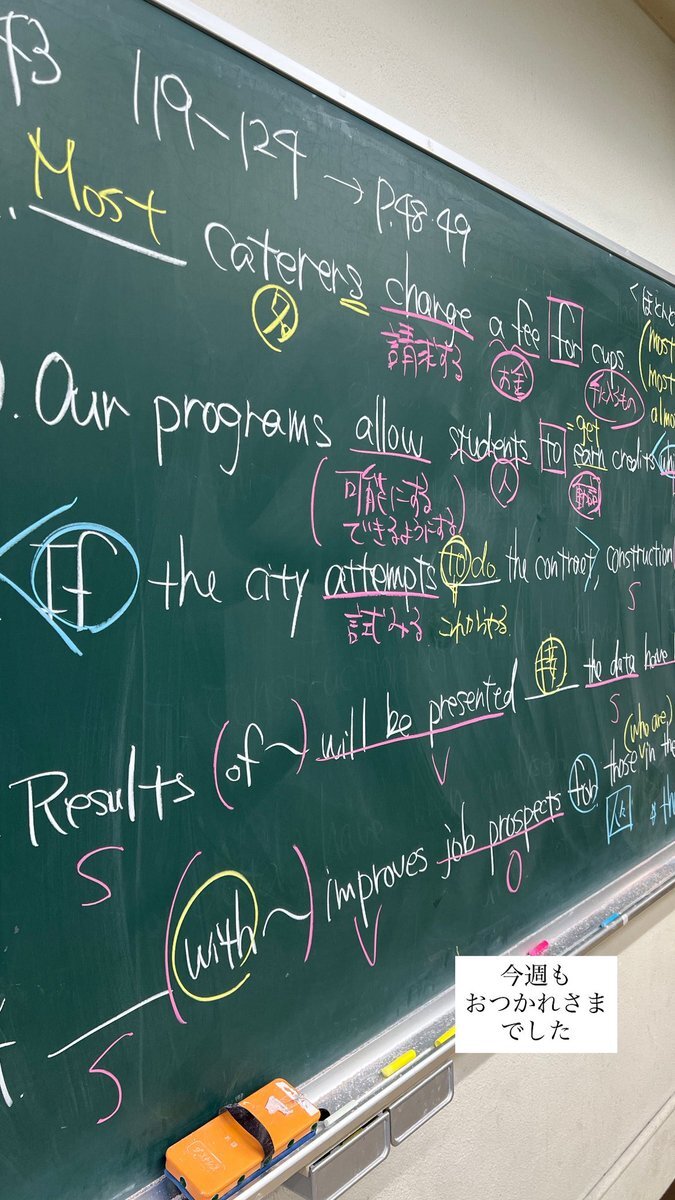 119～124 → P.48.49
Most caterers charge a fee for cups.
人 請求する お金 手に入るもの
くほとんど
(most
most
almo
Our programs allow students to earn credits
= get
(可能にする 人 動詞
できるようにする)
If the city attempts to do the contract, construction
試みる これからやる S
Results (of～) will be presented 接 the data have
S V S
(who are)
(with～) improves job prospects for those in the
S V O 人々
今週も
おつかれさま
でした